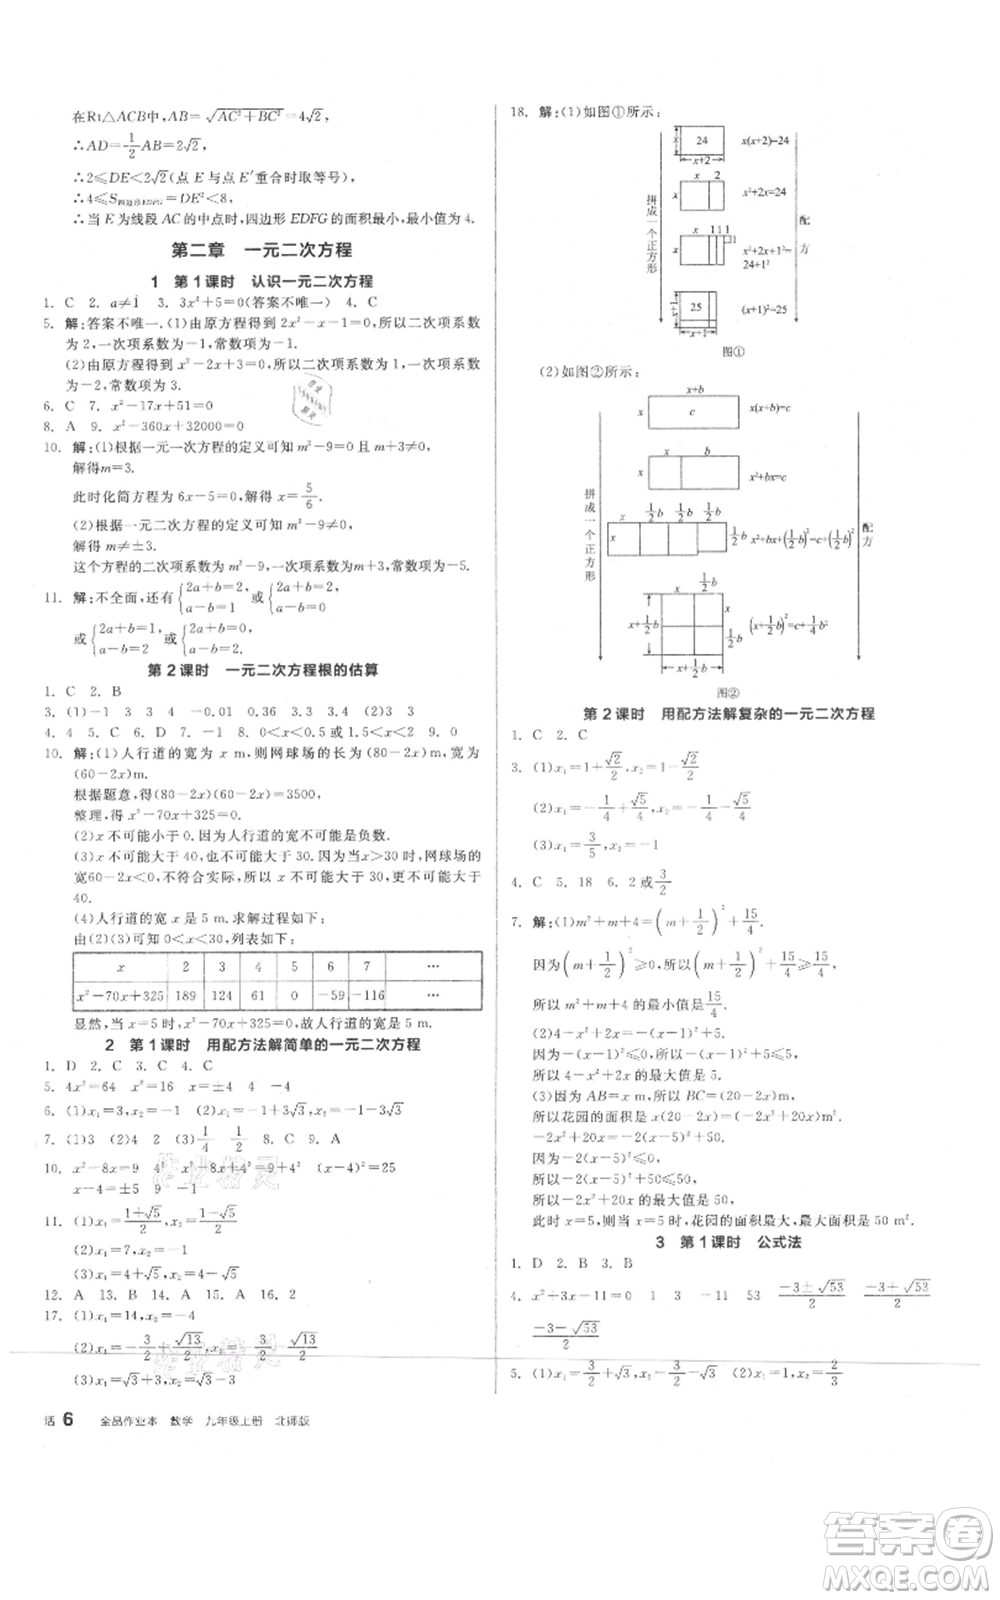 在Rt△ACB中,AB=√(AC²+BC²)=4√2,
∴AD=1/2AB=2√2,
∴2≤DE<2√2(点 E 与点 E′重合时取等号),
∴4≤S四边形EDFG=DE²<8,
∴当 E 为线段 AC 的中点时,四边形 EDFG 的面积最小,最小值为 4.
第二章 一元二次方程
1 第1课时 认识一元二次方程
1. C 2. a≠1 3. 3x²+5=0(答案不唯一) 4. C
5. 解:答案不唯一.(1)由原方程得到 2x²-x-1=0,所以二次项系数
为 2,一次项系数为-1,常数项为-1.
(2)由原方程得到 x²-2x+3=0,所以二次项系数为 1,一次项系数
为-2,常数项为 3.
6. C 7. x²-17x+51=0
8. A 9. x²-360x+32000=0
10. 解:(1)根据一元一次方程的定义可知 m²-9=0 且 m+3≠0,
解得m=3.
此时化简方程为 6x-5=0,解得 x=5/6.
(2)根据一元二次方程的定义可知 m²-9≠0,
解得 m≠±3.
这个方程的二次项系数为 m²-9,一次项系数为 m+3,常数项为-5.
11. 解:不全面,还有{2a+b=2, a-b=1 或{2a+b=2, a-b=0
或{2a+b=1, a-b=2 或{2a+b=0, a-b=2.
第2课时 一元二次方程根的估算
1. C 2. B
3. (1)-1 3 4 -0.01 0.36 3.3 3.4 (2)3 3
4. 4 5. C 6. D 7. -1 8. 0<x<0.5或1.5<x<2 9. 0
10. 解:(1)人行道的宽为 x m,则网球场的长为(80-2x)m,宽为
(60-2x)m.
根据题意,得(80-2x)(60-2x)=3500,
整理,得 x²-70x+325=0.
(2)x 不可能小于 0.因为人行道的宽不可能是负数.
(3)x 不可能大于 40,也不可能大于 30.当x>30 时,网球场的
宽60-2x<0,不符合实际,所以x 不可能大于 30,更不可能大于
40.
(4)人行道的宽 x 是 5 m.求解过程如下:
由(2)(3)可知 0<x<30,列表如下:
x 2 3 4 5 6 7 …
x²-70x+325 189 124 61 0 -59 -116 …
显然,当 x=5 时,x²-70x+325=0,故人行道的宽为 5 m.
2 第1课时 用配方法解简单的一元二次方程
1. D 2. C 3. C 4. C
5. 4x²=64 x²=16 x=±4 4 -4
6. (1)x₁=3,x₂=-1 (2)x₁=-1+3√3,x₂=-1-3√3
7. (1)3 (2)4 2 (3)1/4 1/2 8. C 9. A
10. x²-8x=9 4² x²-8x+4²=9+4² (x-4)²=25
x-4=±5 9 -1
11. (1)x₁=(1+√5)/2,x₂=(1-√5)/2
(2)x₁=7,x₂=-1
(3)x₁=4+√5,x₂=4-√5
12. A 13. B 14. A 15. A 16. 2
17. (1)x₁=14,x₂=-4
(2)x₁=-3/2+√13/2,x₂=-3/2-√13/2
(3)x₁=√3+3,x₂=√3-3
活 6 全品作业本 数学 九年级上册 北师版
18. 解:(1)如图①所示:
x 24 x+2 x(x+2)=24
x 2 x²+2x=24
x 1 1 1 1 x²+2x+1=24+1
x+1 25 x+1 (x+1)²=25
拼成一个正方形
配方
图①
(2)如图②所示:
x+b x c x(x+b)=c
x b x x²+bx=c
x 1/2b 1/2b 1/2b x 1/2b x²+bx+(1/2b)²=c+(1/2b)²
x 1/2b x+1/2b x 1/2b x+1/2b (x+1/2b)²=c+1/4b²
拼成一个正方形
配方
图②
第2课时 用配方法解复杂的一元二次方程
1. C 2. C
3. (1)x₁=1+√2/2,x₂=1-√2/2
(2)x₁=-1/4+√5/4,x₂=-1/4-√5/4
(3)x₁=3/5,x₂=-1
4. C 5. 18 6. 2 或3/2
7. 解:(1)m²+m+4=(m+1/2)²+15/4.
因为(m+1/2)²≥0,所以(m+1/2)²+15/4≥15/4,
所以 m²+m+4 的最小值是15/4.
(2)4-x²+2x=-(x-1)²+5.
因为-(x-1)²≤0,所以-(x-1)²+5≤5,
所以 4-x²+2x 的最大值是 5.
(3)因为 AB=x m,所以 BC=(20-2x)m,
所以花园的面积是 x(20-2x)=(-2x²+20x)m².
-2x²+20x=-2(x-5)²+50.
因为-2(x-5)²≤0,
所以-2(x-5)²+50≤50,
所以-2x²+20x 的最大值是 50,
此时 x=5,所以当 x=5 时,花园的面积最大,最大面积是 50 m².
3 第1课时 公式法
1. D 2. B 3. B
4. x²+3x-11=0 1 3 -11 53 (-3±√53)/2 (-3+√53)/2
(-3-√53)/2
5. (1)x₁=3/2+√3,x₂=3/2-√3 (2)x₁=-1/2,x₂=2/3
作业精灵
作业精灵
答案卷